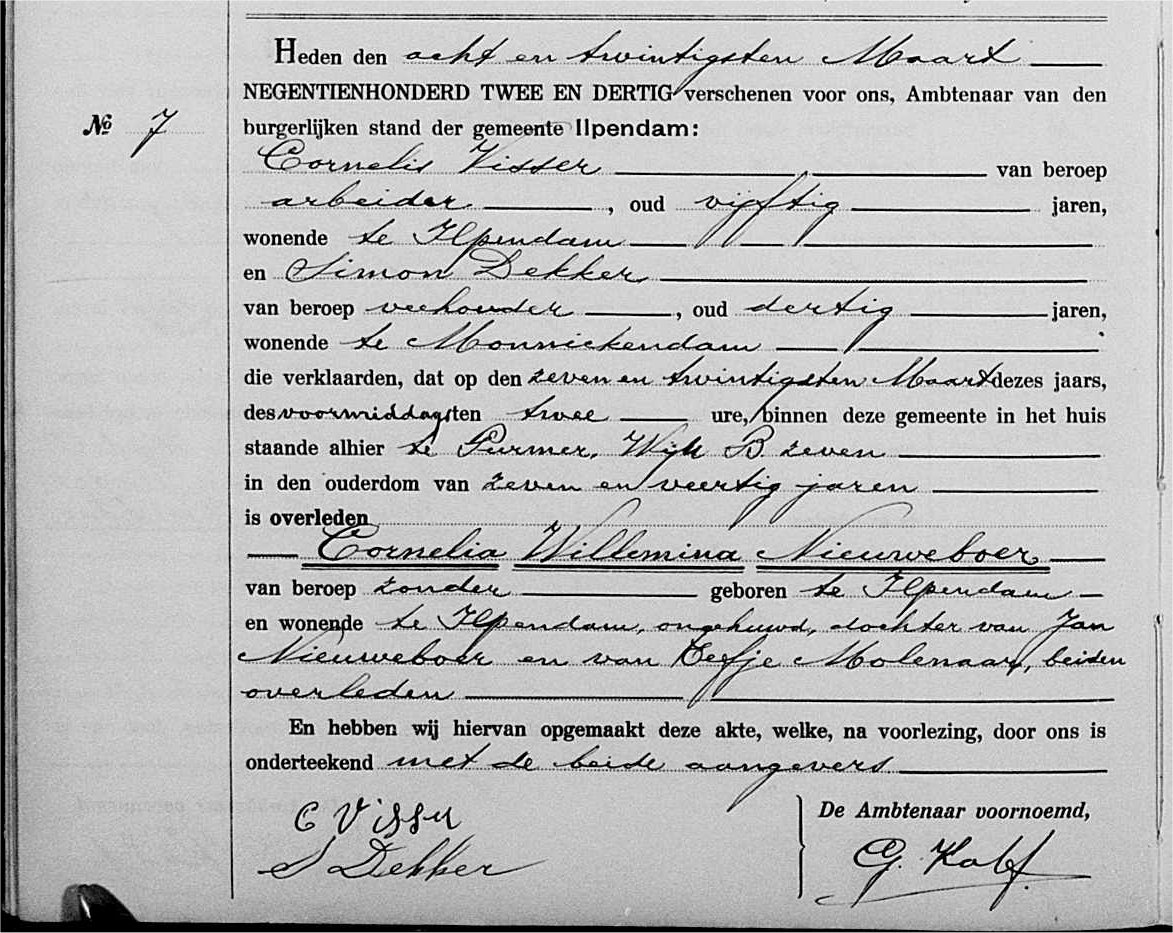 Heden den acht en twintigsten Maart
NEGENTIENHONDERD TWEE EN DERTIG verschenen voor ons, Ambtenaar van den
№ 7
burgerlijken stand der gemeente Ilpendam:
Cornelis Visser van beroep
arbeider, oud vijftig jaren,
wonende te Ilpendam
en Simon Dekker
van beroep veehouder, oud dertig jaren,
wonende te Monnickendam
die verklaarden, dat op den zeven en twintigsten Maart dezes jaars,
des voormiddags ten twee ure, binnen deze gemeente in het huis
staande alhier te Purmer, Wijk B zeven
in den ouderdom van zeven en veertig jaren
is overleden
Cornelia Willemina Nieuweboer
van beroep zonder geboren te Ilpendam
en wonende te Ilpendam, ongehuwd, dochter van Jan
Nieuweboer en van Eefje Molenaar, beiden
overleden
En hebben wij hiervan opgemaakt deze akte, welke, na voorlezing, door ons is
onderteekend met de beide aangevers
C Visser
De Ambtenaar voornoemd,
S Dekker